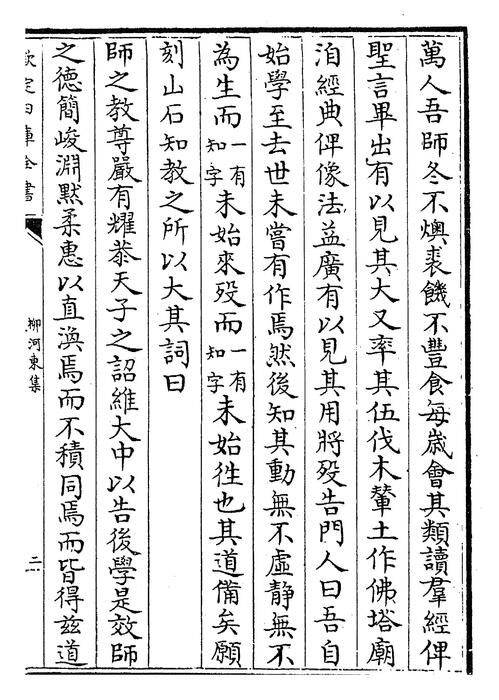 萬人吾師冬不燠裘饑不豐食每歲會其類讀羣經俾
聖言畢出有以見其大又率其伍伐木輦土作佛塔廟
洎經典俾像法益廣有以見其用將歿告門人曰吾自
始學至去世未嘗有作焉然後知其動無不虛静無不
為生而一有知字未始來歿而一有知字未始徃也其道備矣願
刻山石知教之所以大其詞曰
師之教尊嚴有耀恭天子之詔維大中以告後學是效師
之德簡峻淵默柔惠以直渙焉而不積同焉而皆得兹道
欽定四庫全書
柳河東集
二